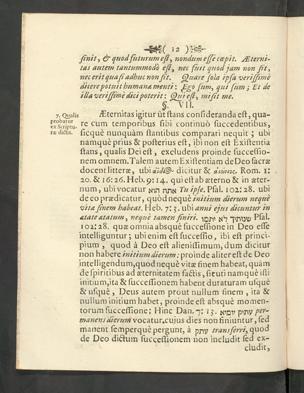 ( 12 )
sinit, & quod futurum est, nondum esse cœpit. Æterni-
tas autem tantummodò est, nec fuit quod jam non sit,
nec erit quasi adhuc non sit. Quare sola ipsa verissimè
dicere potuit humanæ menti: Ego sum, qui sum; Et de
illa verissimè dici poterit: Qui est, misit me.
§. VII.
7. Qualis
probatur
ex Scriptu-
ræ dictis.
Æternitas igitur ut stans consideranda est, qua-
re cum temporibus sibi continuò succedentibus,
sicque nunquam stantibus comparari nequit; ubi
namque prius & posterius est, ibi non est Existentia
stans, qualis Dei est, excludens proinde successio-
nem omnem. Talem autem Existentiam de Deo sacræ
docent litteræ, ubi dicitur & Rom. 1:
20. & 16:26. Heb. 9:14. qui est ab æterno & in æter-
num, ubi vocatur אתה הוא Tu ipse. Psal. 102:28. ubi
de eo prædicatur, quod neque initium dierum neque
vitæ finem habeat. Heb. 7:3. ubi anni ejus dicuntur in
ætate ætatum, neque tamen finiri. שנותיך לא יתמו Psal.
102:28. quæ omnia absque successione in Deo esse
intelliguntur; ubi enim est successio, ibi est princi-
pium, quod à Deo est alienissimum, dum dicitur
non habere initium dierum; proinde aliter est de Deo
intelligendum, quod neque vitæ finem habeat, quàm
de spiritibus ad æternitatem factis, siquidem namque isti
initium, ita & successionem habent duraturam usque
& usque, Deus autem prout nullum finem, ita &
nullum initium habet, proinde est absque momen-
torum successione; Hinc Dan. 7:13. עתיק יומיא per-
manens dierum vocatur, cujus dies non finiuntur, sed
manent semperque pergunt, à עתק transferri, quod
de Deo dictum successionem non includit sed ex-
cludit,